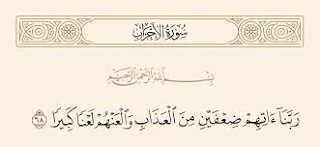 سُورَةُ الأَحْزَابِ
بِسْمِ اللَّهِ الرَّحْمَٰنِ الرَّحِيمِ
رَبَّنَآ ءَاتِهِمْ ضِعْفَيْنِ مِنَ ٱلْعَذَابِ وَٱلْعَنْهُمْ لَعْنًا كَبِيرًا ٦٨